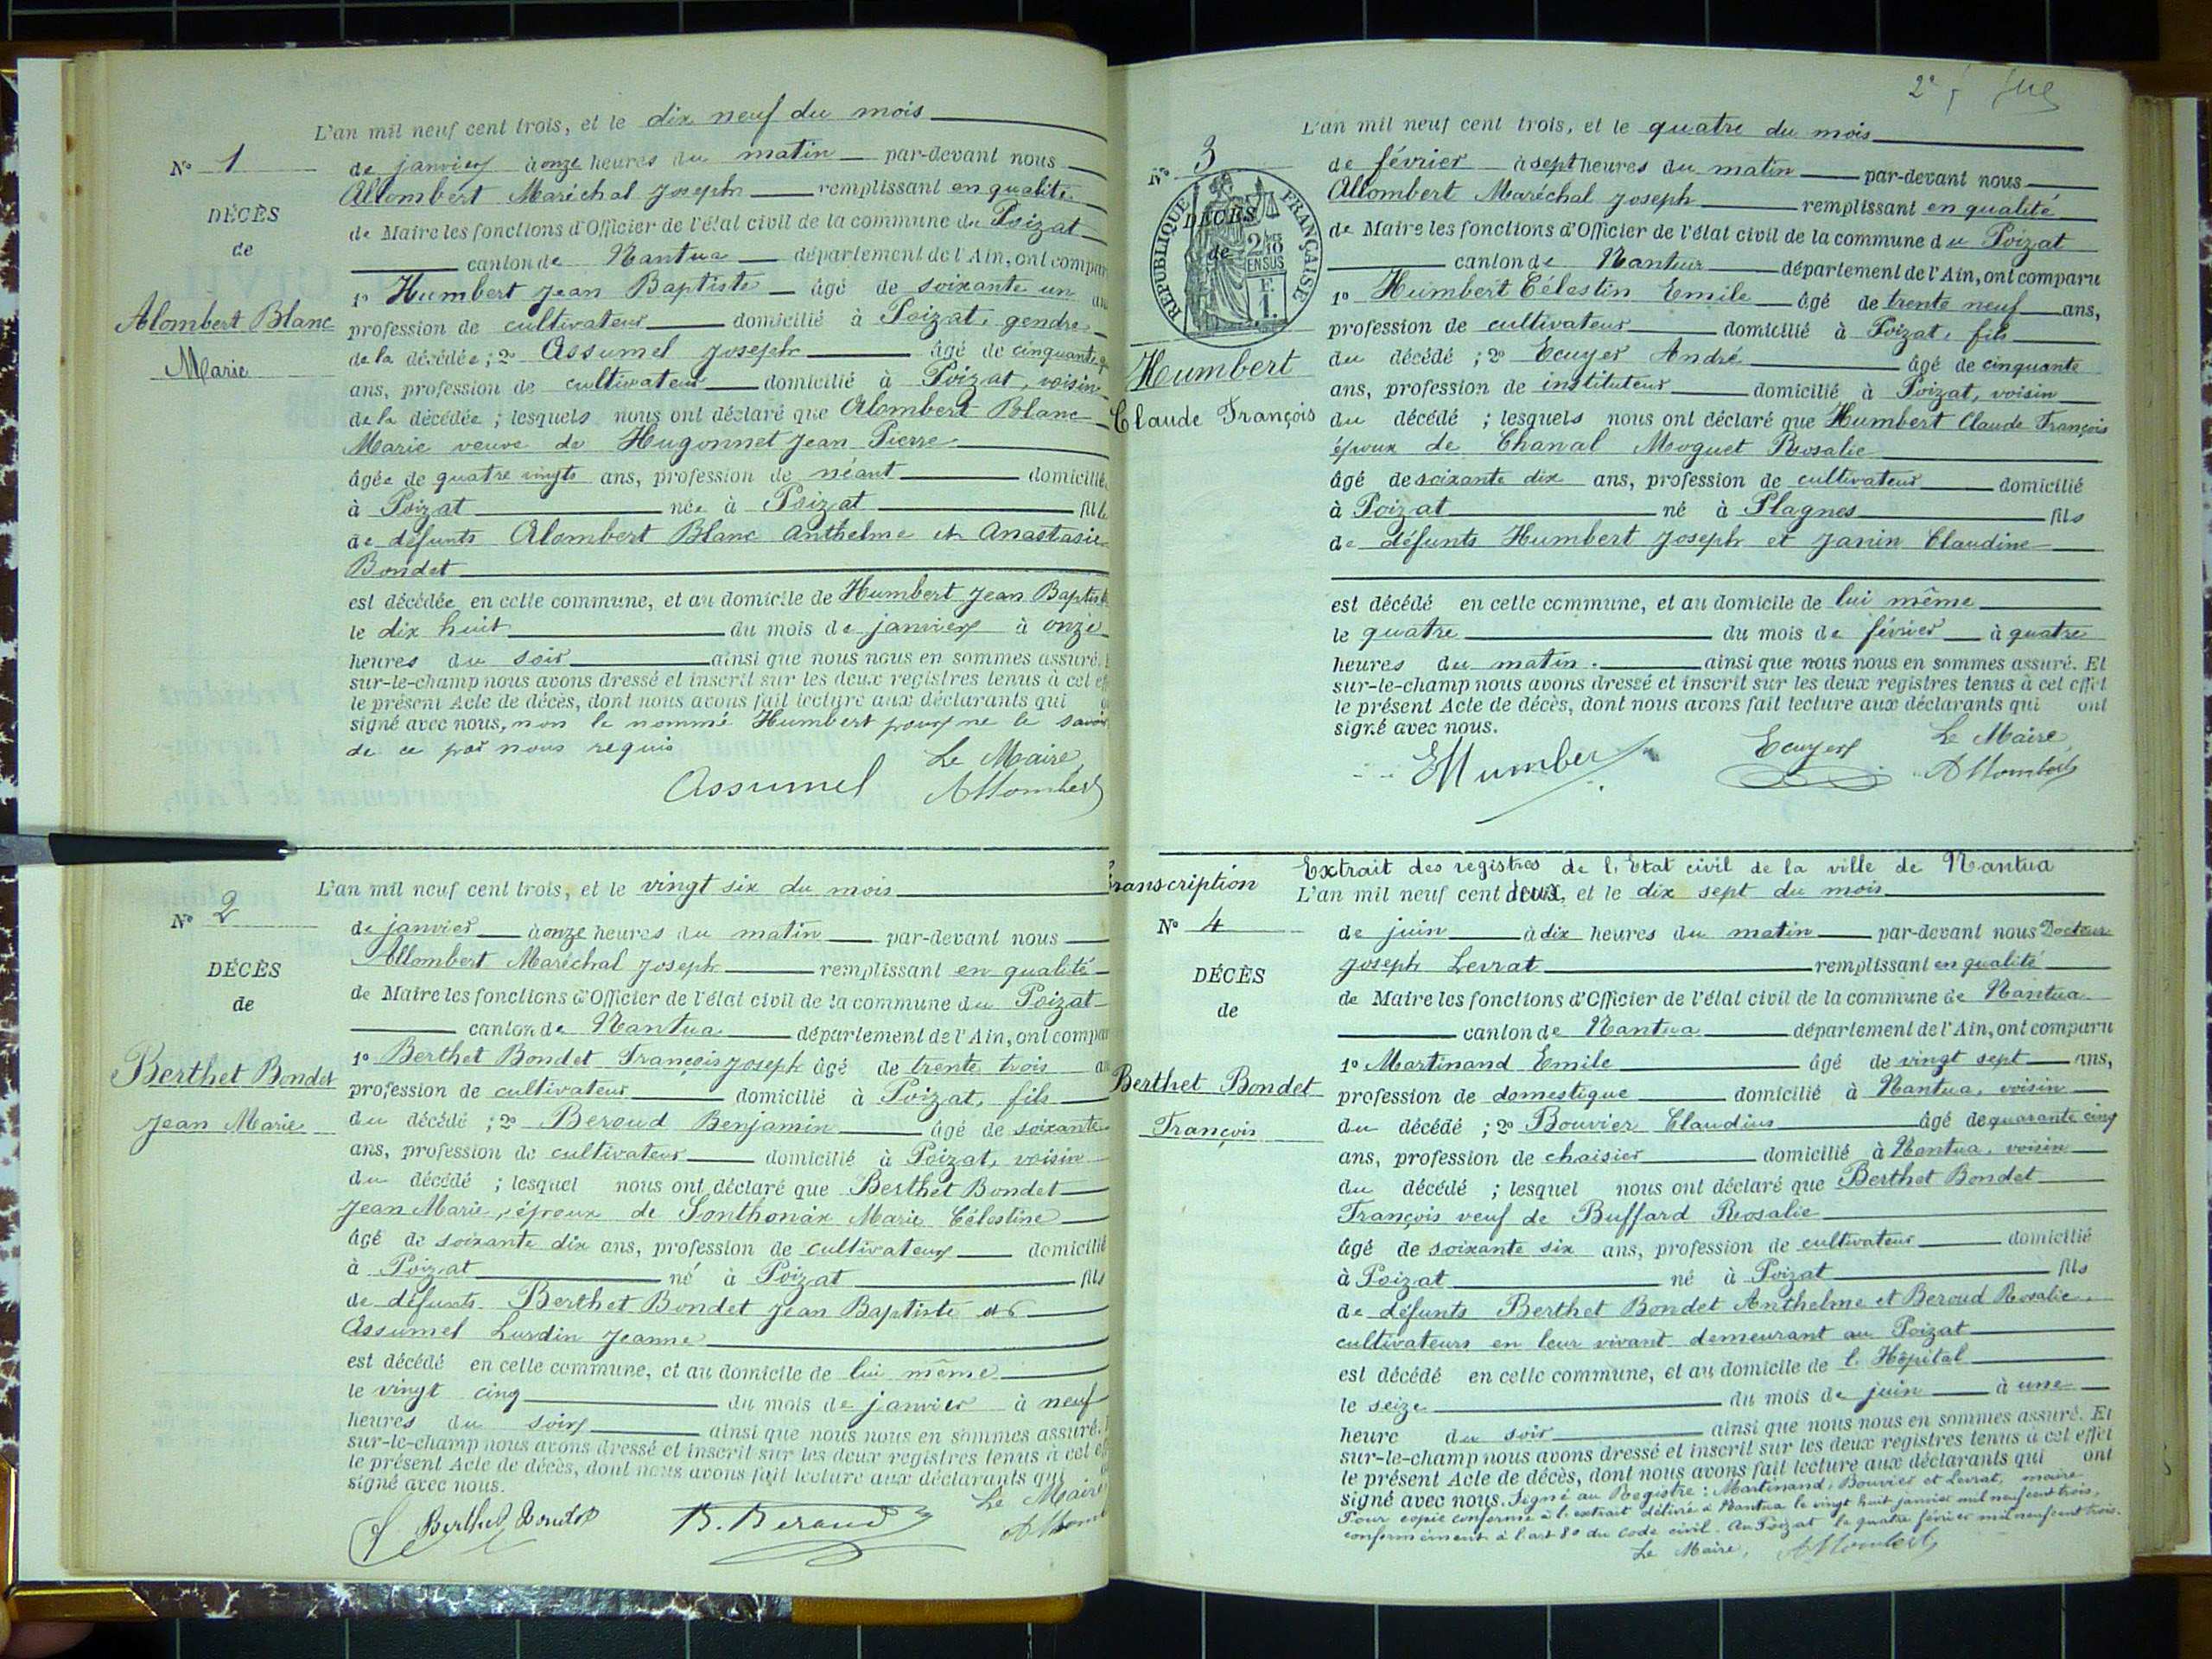 L'an mil neuf cent trois, et le dix neuf du mois
N° 1
de janvier à onze heures du matin par-devant nous
Allombert Maréchal Joseph remplissant en qualité
DÉCÈS
de Maire les fonctions d'Officier de l'état civil de la commune du Poizat
de
canton de Nantua département de l'Ain, ont compar
1° Humbert Jean Baptiste âgé de soixante un
Alombert Blanc
profession de cultivateur domicilié à Poizat, gendre
de la décédée ; 2° Assumel Joseph âgé de cinquante
Marie
ans, profession de cultivateur domicilié à Poizat, voisin
de la décédée ; lesquels nous ont déclaré que Alombert Blanc
Marie veuve de Hugonnet Jean Pierre
âgée de quatre vingts ans, profession de néant domicilié
à Poizat née à Poizat fille
de défunts Alombert Blanc Anthelme et Anastasie
Bondet
est décédée en cette commune, et au domicile de Humbert Jean Baptist
le dix huit du mois de janvier à onze
heures du soir ainsi que nous nous en sommes assuré.
sur-le-champ nous avons dressé et inscrit sur les deux registres tenus à cet eff
le présent Acte de décès, dont nous avons fait lecture aux déclarants qui
signé avec nous, non le nommé Humbert pour ne le savoir
de ce par nous requis
Le Maire
Assumel Allombert
L'an mil neuf cent trois, et le vingt six du mois
N° 2
de janvier à onze heures du matin par-devant nous
Allombert Maréchal Joseph remplissant en qualité
DÉCÈS
de Maire les fonctions d'Officier de l'état civil de la commune du Poizat
de
canton de Nantua département de l'Ain, ont compar
1° Berthet Bondet François Joseph âgé de trente trois
Berthet Bondet
profession de cultivateur domicilié à Poizat, fils
Jean Marie
du décédé ; 2° Beroud Benjamin âgé de soixante
ans, profession de cultivateur domicilié à Poizat, voisin
du décédé ; lesquel nous ont déclaré que Berthet Bondet
Jean Marie, époux de Sonthonax Marie Célestine
âgé de soixante dix ans, profession de cultivateur domicilié
à Poizat né à Poizat fils
de défunts Berthet Bondet Jean Baptiste et
Assumel Lurdin Jeanne
est décédé en cette commune, et au domicile de lui même
le vingt cinq du mois de janvier à neuf
heures du soir ainsi que nous nous en sommes assuré.
sur-le-champ nous avons dressé et inscrit sur les deux registres tenus à cet eff
le présent Acte de décès, dont nous avons fait lecture aux déclarants qui
signé avec nous.
Le Maire
Berthet Bondet B. Beraud
2°
L'an mil neuf cent trois, et le quatre du mois
N° 3
de février à sept heures du matin par-devant nous
Allombert Maréchal Joseph remplissant en qualité
RÉPUBLIQUE FRANÇAISE
DÉCÈS
de
EN SUS
de Maire les fonctions d'Officier de l'état civil de la commune du Poizat
canton de Nantua département de l'Ain, ont comparu
1° Humbert Célestin Emile âgé de trente neuf ans,
profession de cultivateur domicilié à Poizat, fils
Humbert
du décédé ; 2° Ecuyer André âgé de cinquante
ans, profession de instituteur domicilié à Poizat, voisin
Claude François
du décédé ; lesquels nous ont déclaré que Humbert Claude François
époux de Chanal Moguet Rosalie
âgé de soixante dix ans, profession de cultivateur domicilié
à Poizat né à Plagnes fils
de défunts Humbert Joseph et Janin Claudine
est décédé en cette commune, et au domicile de lui même
le quatre du mois de février à quatre
heures du matin. ainsi que nous nous en sommes assuré. Et
sur-le-champ nous avons dressé et inscrit sur les deux registres tenus à cet effet
le présent Acte de décès, dont nous avons fait lecture aux déclarants qui ont
signé avec nous.
Le Maire
EHumbert Ecuyer Allombert
Extrait des registres de l'Etat civil de la ville de Nantua
Transcription
L'an mil neuf cent deux, et le dix sept du mois
N° 4
de juin à dix heures du matin par-devant nous Docteur
Joseph Levrat remplissant en qualité
DÉCÈS
de Maire les fonctions d'Officier de l'état civil de la commune de Nantua
de
canton de Nantua département de l'Ain, ont comparu
1° Martinand Emile âgé de vingt sept ans,
Berthet Bondet
profession de domestique domicilié à Nantua, voisin
François
du décédé ; 2° Bouvier Claudius âgé de quarante cinq
ans, profession de chaisier domicilié à Nantua, voisin
du décédé ; lesquel nous ont déclaré que Berthet Bondet
François veuf de Buffard Rosalie
âgé de soixante six ans, profession de cultivateur domicilié
à Poizat né à Poizat fils
de défunts Berthet Bondet Anthelme et Beroud Rosalie,
cultivateurs en leur vivant demeurant au Poizat
est décédé en cette commune, et au domicile de l'Hôpital
le seize du mois de juin à une
heure du soir ainsi que nous nous en sommes assuré. Et
sur-le-champ nous avons dressé et inscrit sur les deux registres tenus à cet effet
le présent Acte de décès, dont nous avons fait lecture aux déclarants qui ont
signé avec nous. Signé au Registre : Martinand, Bouvier et Levrat, maire
Pour copie conforme à l'extrait délivré à Nantua le vingt huit janvier mil neuf cent trois,
conformément à l'art 80 du Code civil. Au Poizat le quatre février mil neuf cent trois.
Le Maire, Allombert